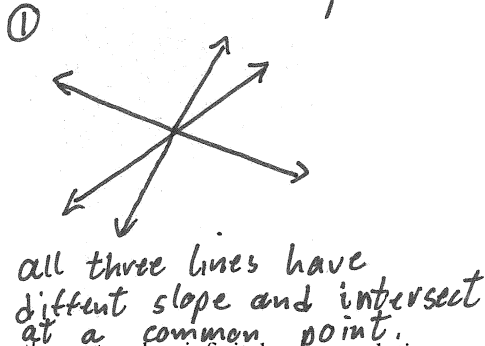 ①
all three lines have
diffent slope and intersect
at a common point.